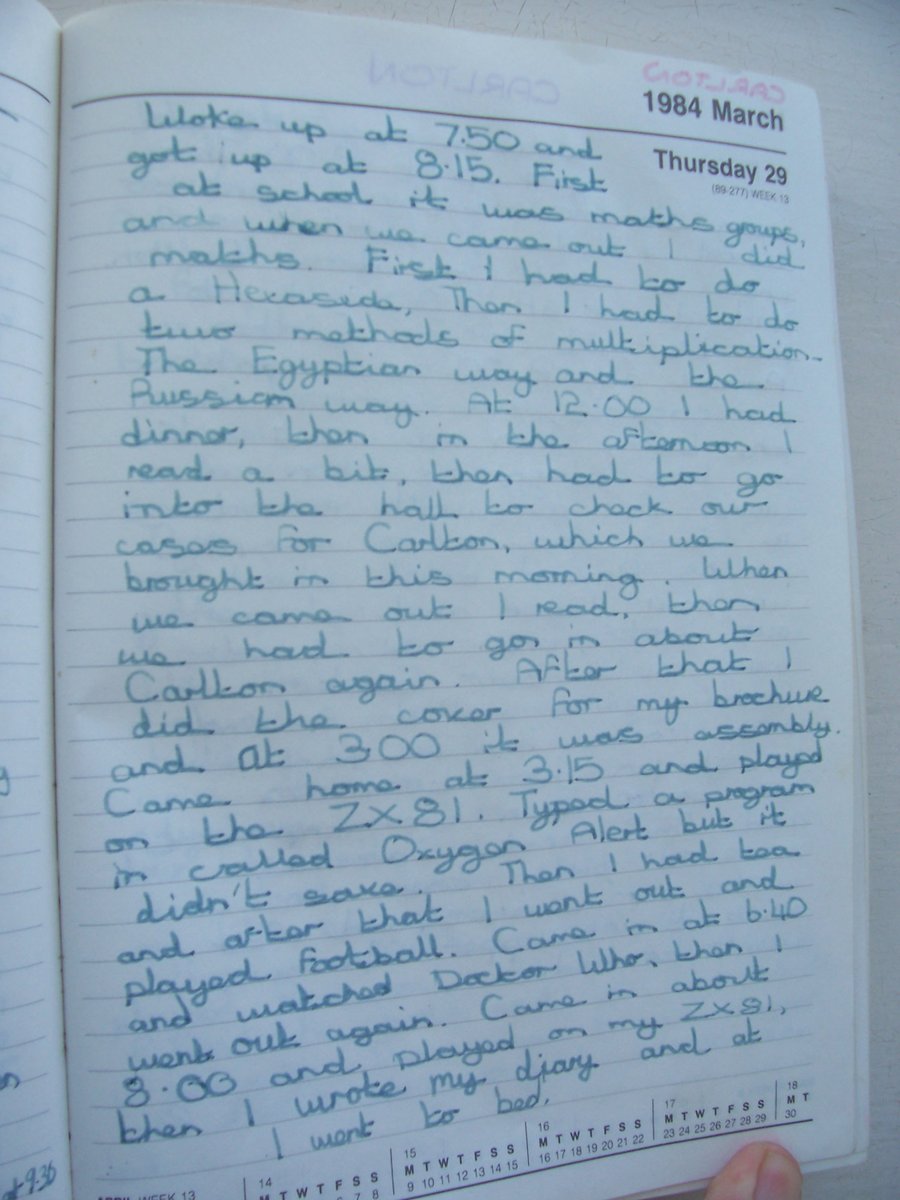 CARLTON
CARLTON
1984 March
Thursday 29
(89-277) WEEK 13
Woke up at 7.50 and
got up at 8.15. First
at school it was maths groups,
and when we came out I did
maths. First I had to do
a Hexaseida, Then I had to do
two methods of multiplication.
The Egyptian way and the
Russian way. At 12.00 I had
dinner, then in the afternoon I
read a bit, then had to go
into the hall to check our
cases for Carlton, which we
brought in this morning. When
we came out I read, then
we had to go in about
Carlton again. After that I
did the cover for my brochure
and at 3.00 it was assembly.
Came home at 3.15 and played
on the ZX81. Typed a program
in called Oxygen Alert but it
didn't save. Then I had tea
and after that I went out and
played football. Came in at 6.40
and watched Doctor Who, then I
went out again. Came in about
8.00 and played on my ZX81,
then I wrote my diary and at
I went to bed.
at 9.30
APRIL WEEK 13
14
M T W T F S S
7 8
15
M T W T F S S
9 10 11 12 13 14 15
16
M T W T F S S
16 17 18 19 20 21 22
17
M T W T F S S
23 24 25 26 27 28 29
18
M T
30